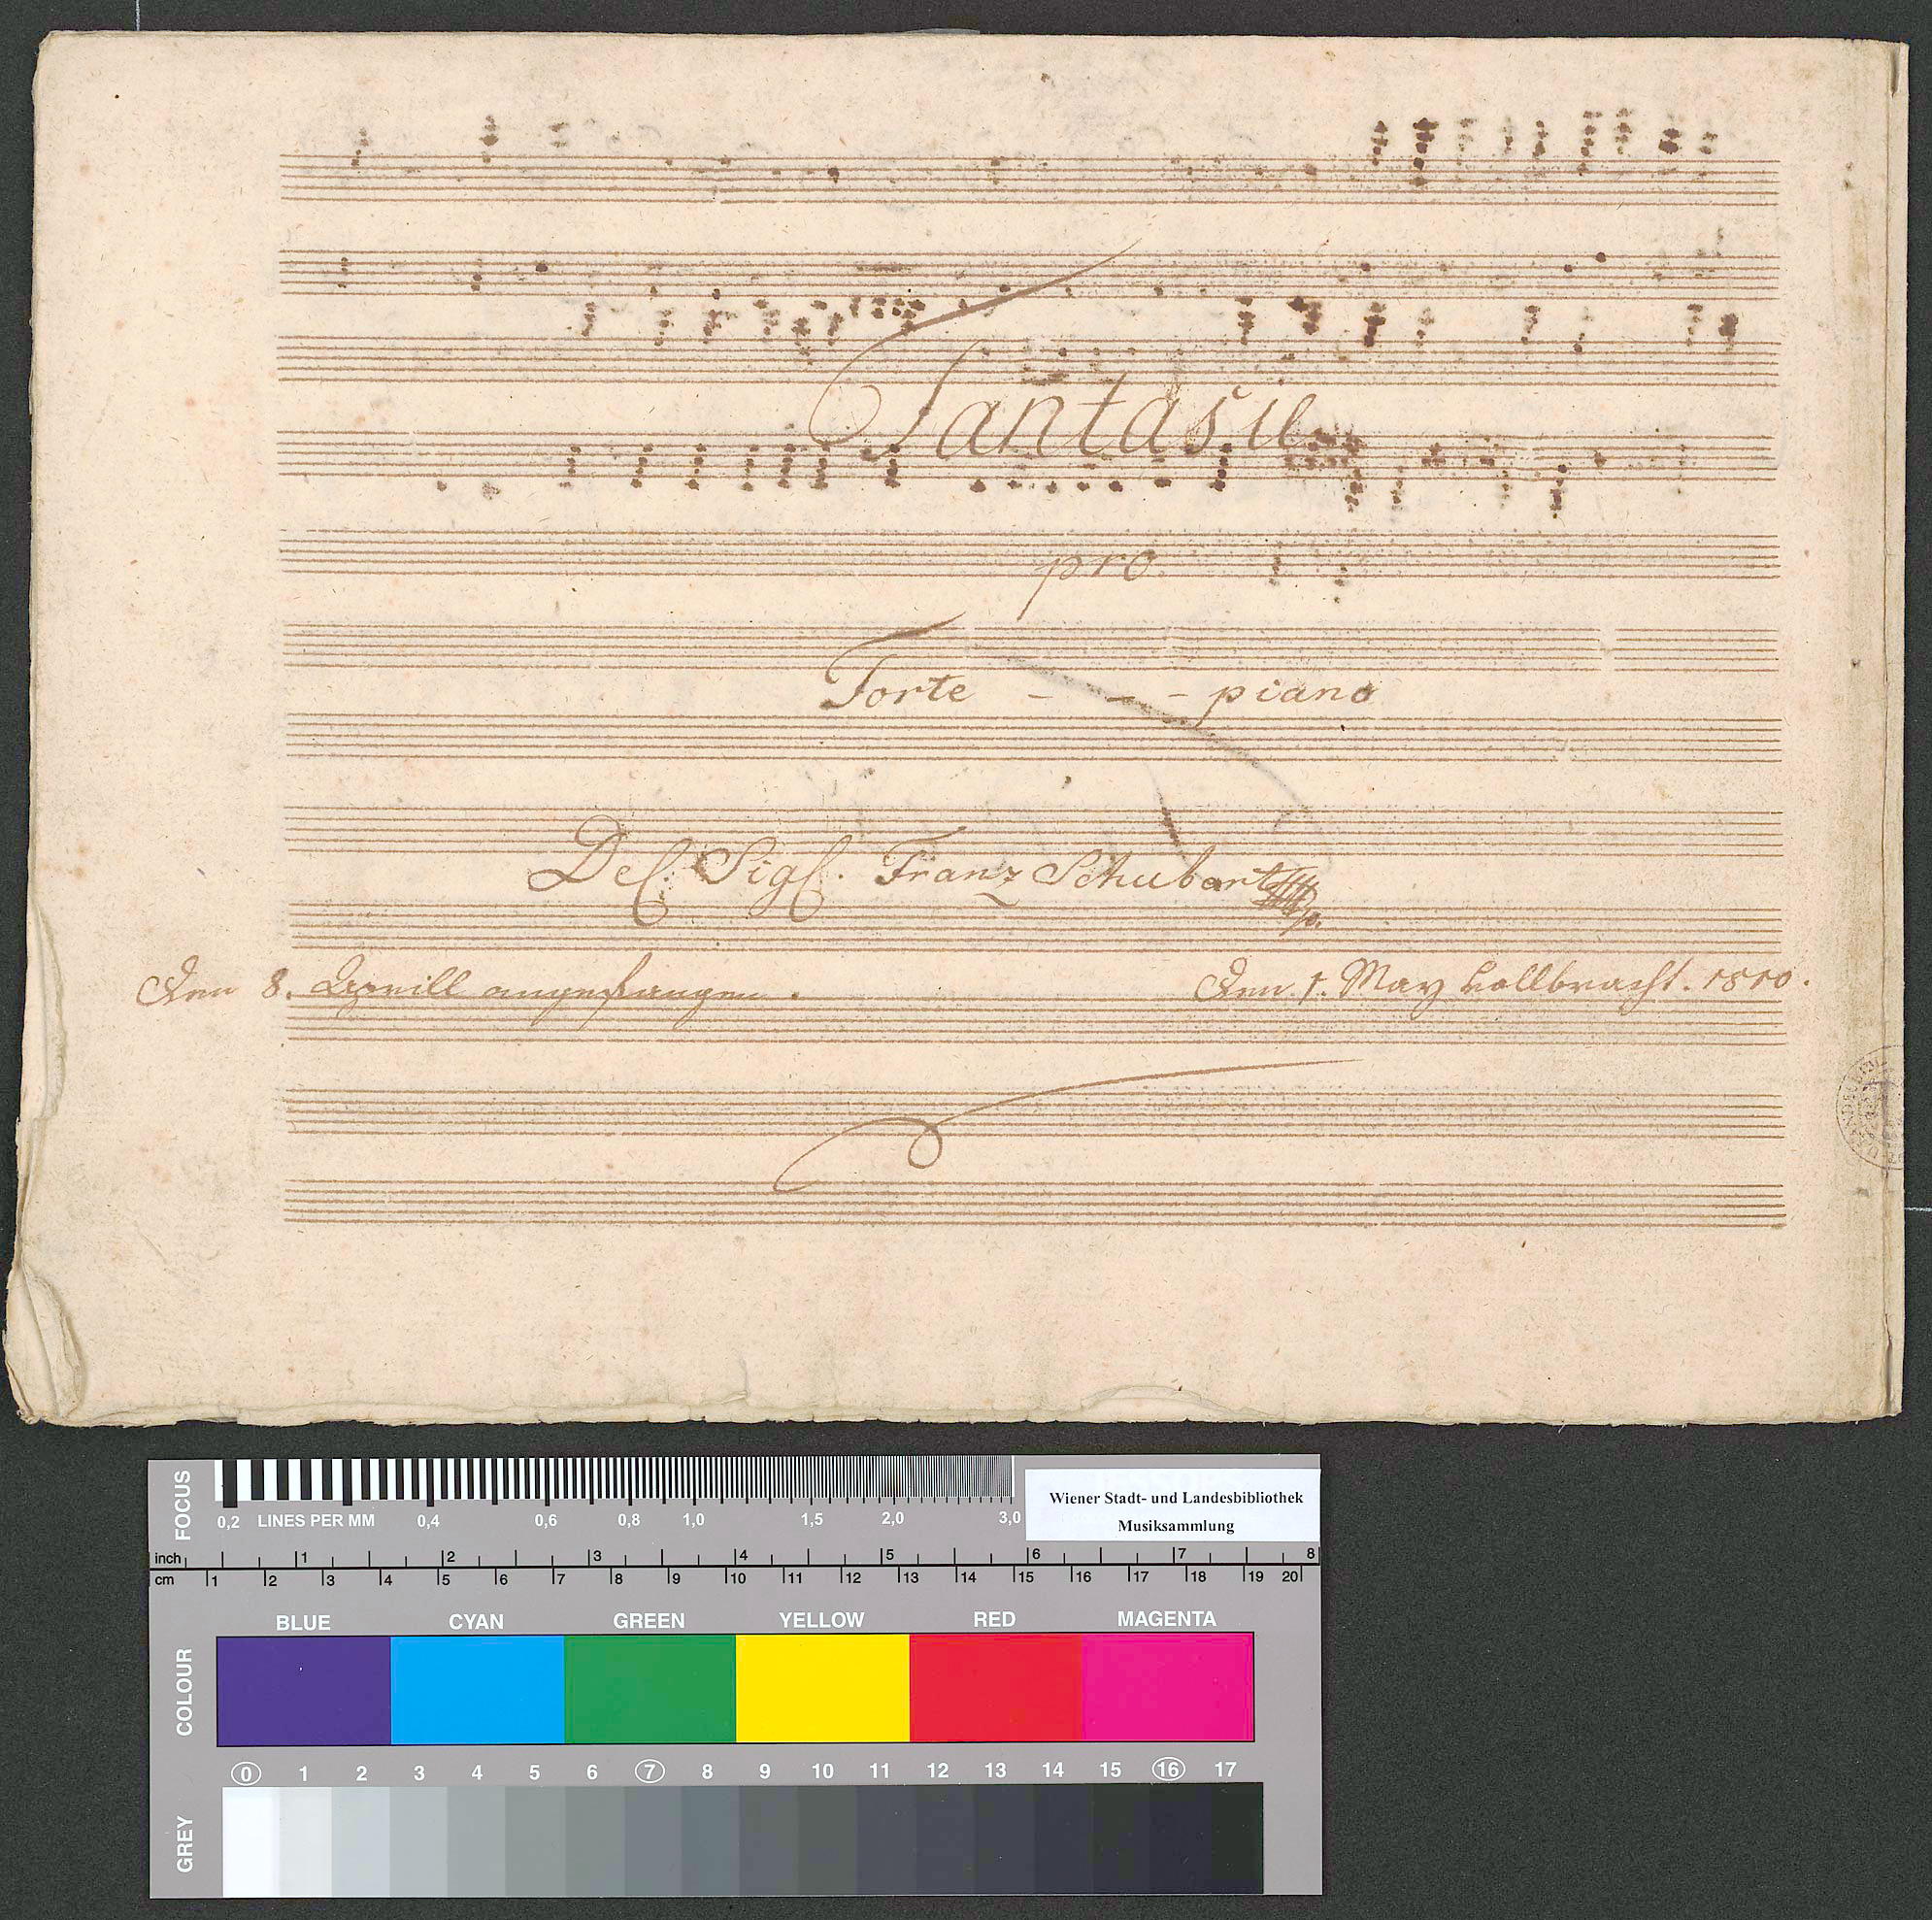 Fantasie
pro
Forte - - - piano
Del Sigl. Franz Schubart
Den 8. Aprill angefangen. Den 1. May vollbracht. 1810.
FOCUS
0,2 LINES PER MM 0,4 0,6 0,8 1,0 1,5 2,0 3,0
Wiener Stadt- und Landesbibliothek
Musiksammlung
inch 1 2 3 4 5 6 7 8
cm 1 2 3 4 5 6 7 8 9 10 11 12 13 14 15 16 17 18 19 20
COLOUR
BLUE CYAN GREEN YELLOW RED MAGENTA
0 1 2 3 4 5 6 7 8 9 10 11 12 13 14 15 16 17
GREY